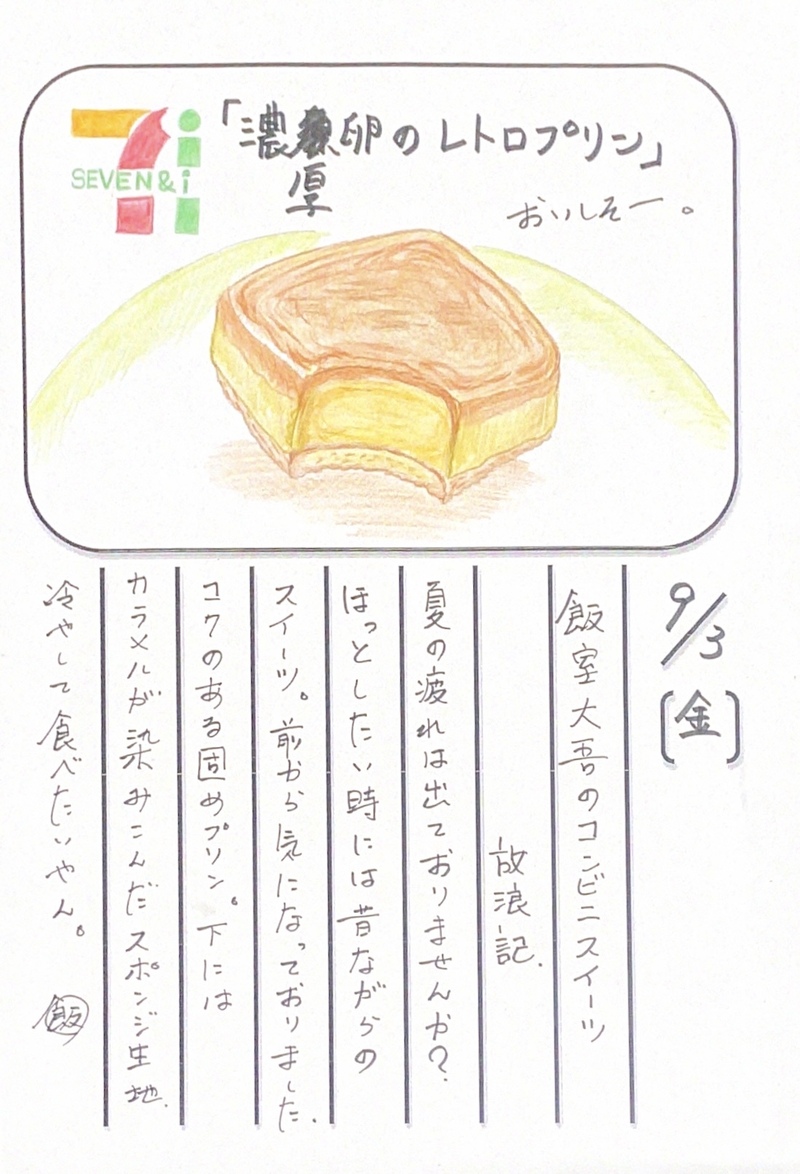 SEVEN & i
「濃厚卵のレトロプリン」
おいしそー。
9/3
[金]
飯室大吾のコンビニスイーツ
放浪記.
夏の疲れは出ておりませんか?
ほっとしたい時には昔ながらの
スイーツ。前から気になっておりました.
コクのある固めプリン。下には
カラメルが染みこんだスポンジ生地.
冷やして食べたいやん。
飯